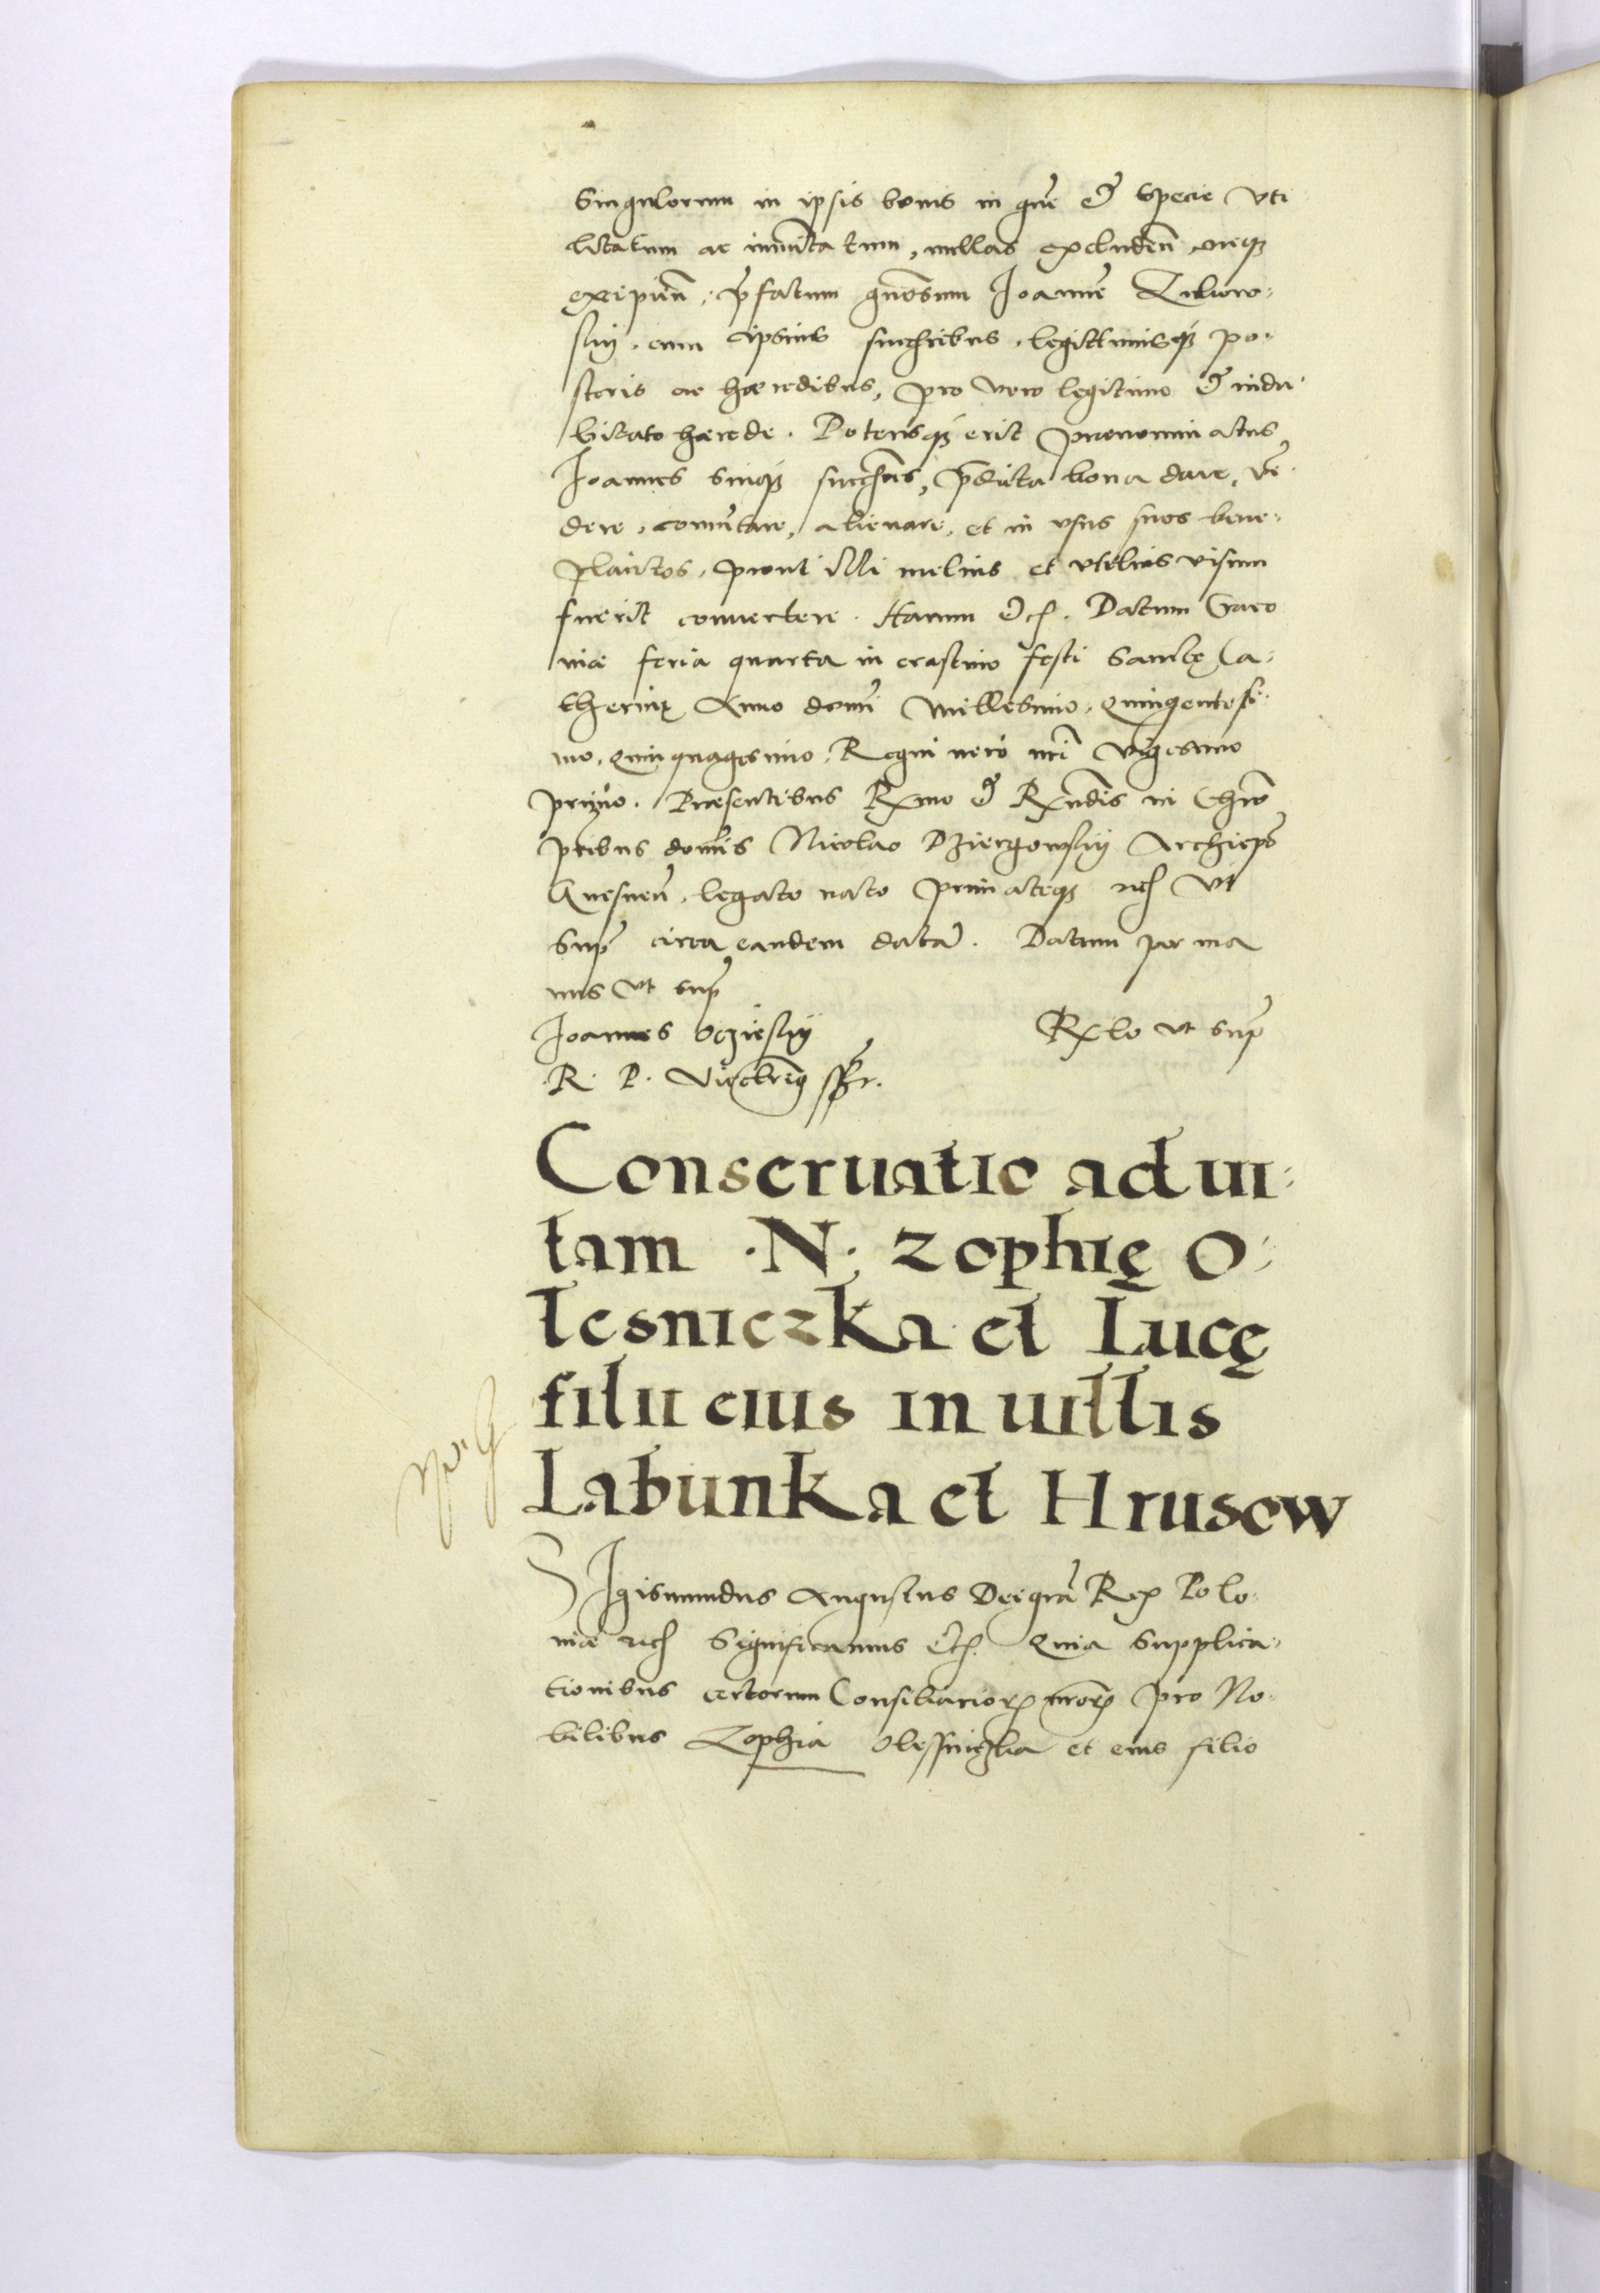 Singulorum in ipsis bonis in gñe et Specie Vti
litatum ac immũtatum, nullas excludeñ neq̃
excipieñ. p̃fatum gñosum Joannẽ
sky. cum ipsius successoribus, legittimisq̃ po-
steris ac hæredibus, pro vero legitimo et indu-
bitato hærede. Potensq̃ erit prenominatus
Joannes suiq̃ succ̃es, p̃dicta bona dare, vẽ-
dere, comutare, alienare, et in vsus suos bene-
placitos, prout illi melius et vtilius visum
fuerit conuertere. Harum etc̃. Datum Craco
uiæ feria quarta in crastino festi Sanctę Ca-
therinę Anno domĩ Millesimo, Quingentesi-
mo, Quinquagesimo. Regni vero nr̃i Vigesimo
primo. Præsentibus Rx̃mo et Rx̃ndis in Chr̃o
pr̃ibus domĩs Nicolao Dziergowsky Archiep̃o
Gnesneñ. legato nato primateq̃ etc̃ Vt
Sup̃ circa eandem datã. Datum per ma
nus vt sup̃
Joannes Ocziesky
Rx̃lo vt sup̃
.R. P. Vicecancell̃ sp̃t.
Conseruatio ad ui-
tam .N. Zophię O-
lesniczka et Lucę
filii eius in uillis
Labunka et Hrusow
SIgismundus Augustus Dei gr̃a Rex Polo-
niæ etc̃ Significamus etc̃. Quia Supplica-
tionibus certorum Consiliarioꝝ nr̃oꝝ pro No-
bilibus Zophia Olessniczka et eius filio